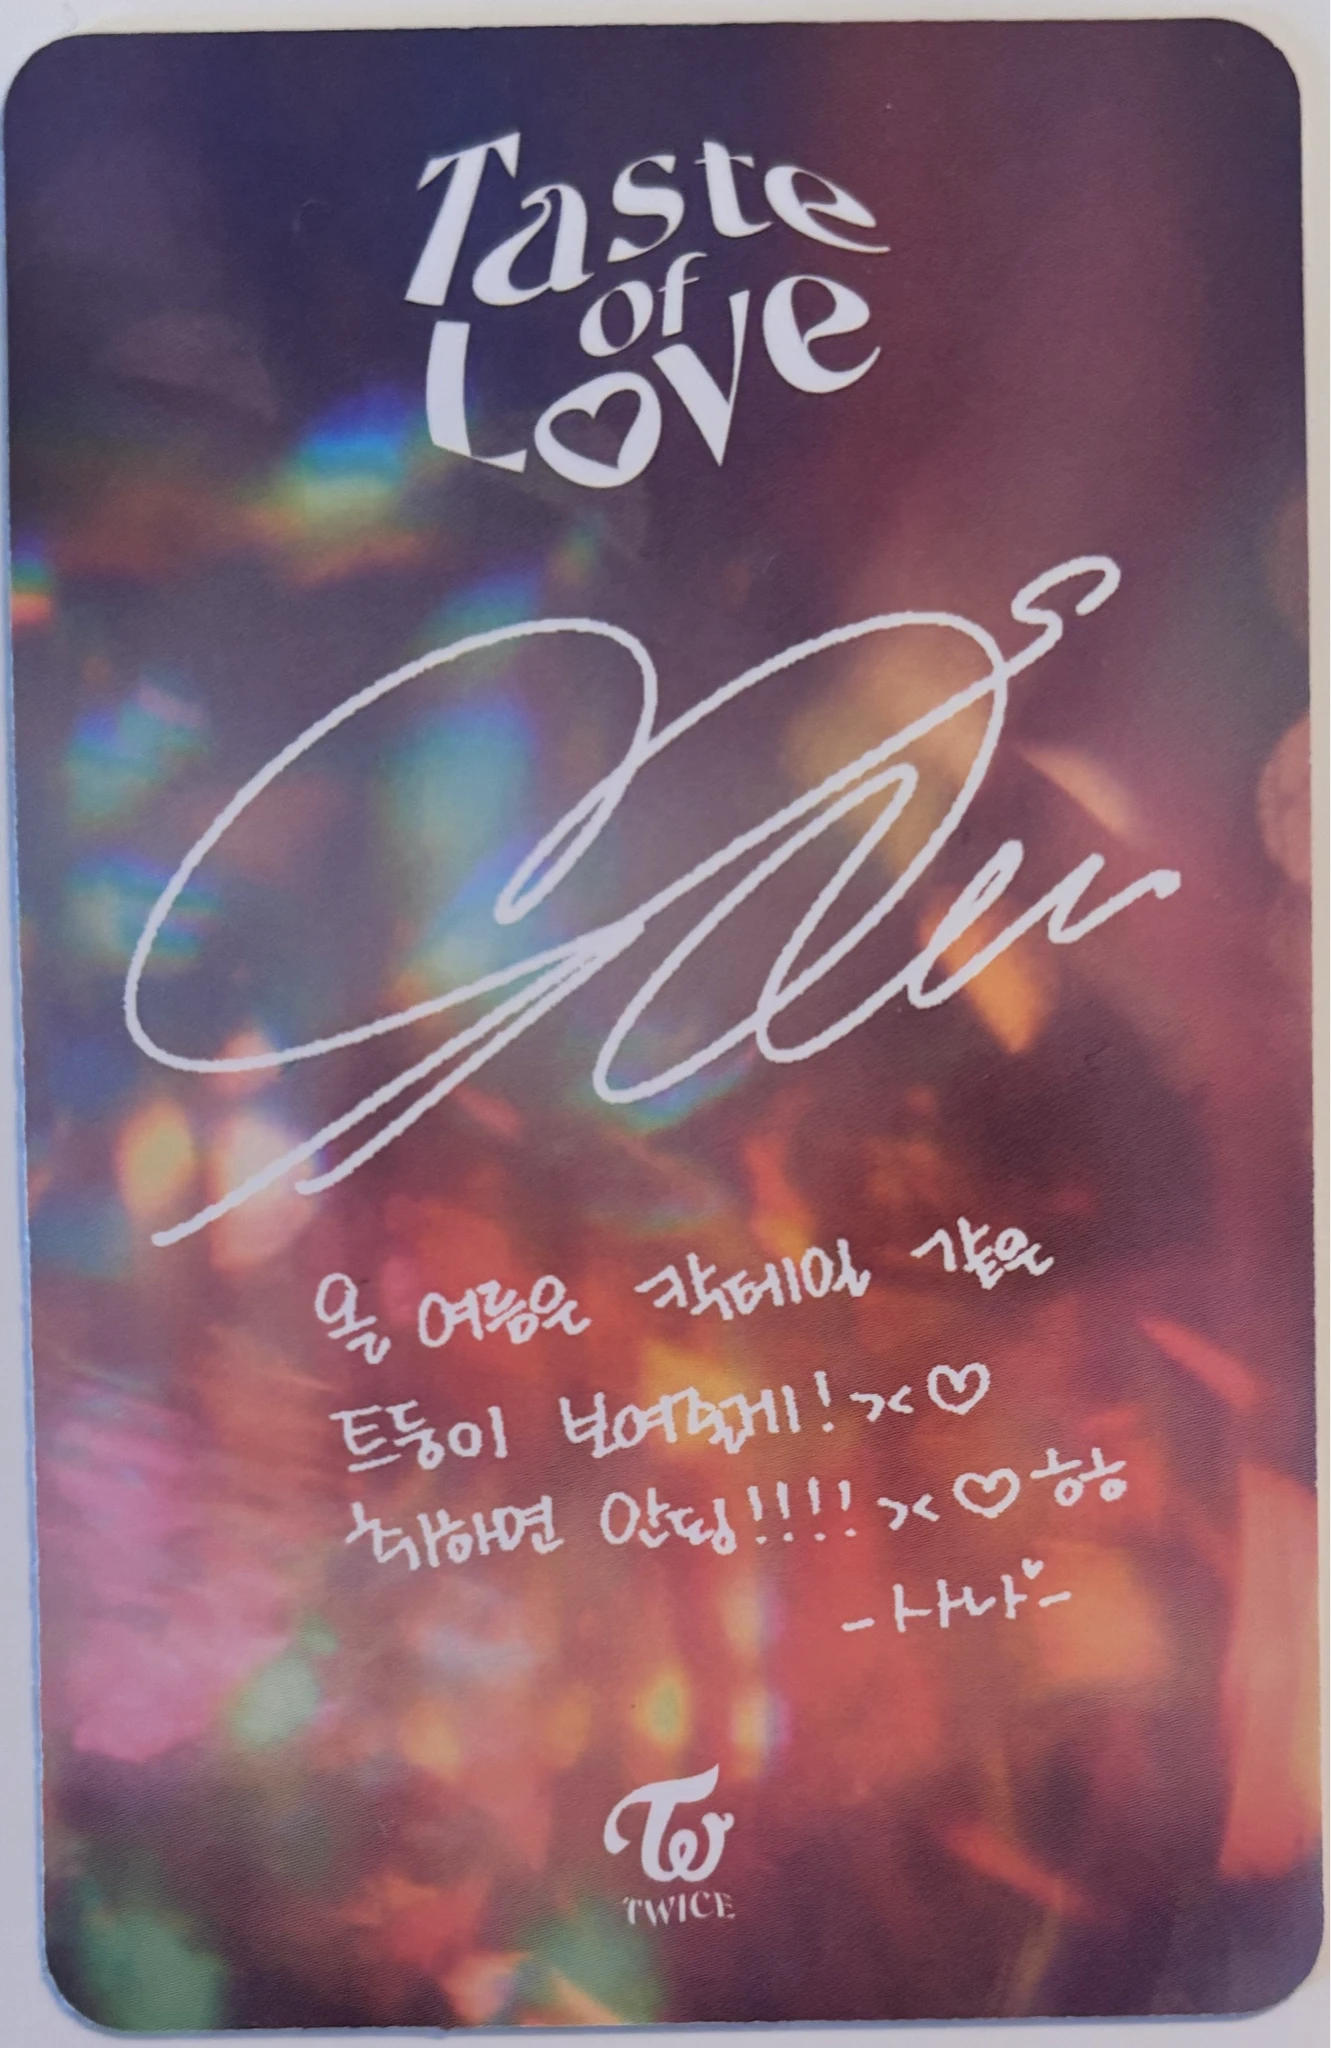 Taste
of
Love
올 여름은 칵테일 같은
트둥이 보여줄게! >< ♡
취하면 안됑!!!! >< ♡ ㅎㅎ
- 사나 -
TW
TWICE